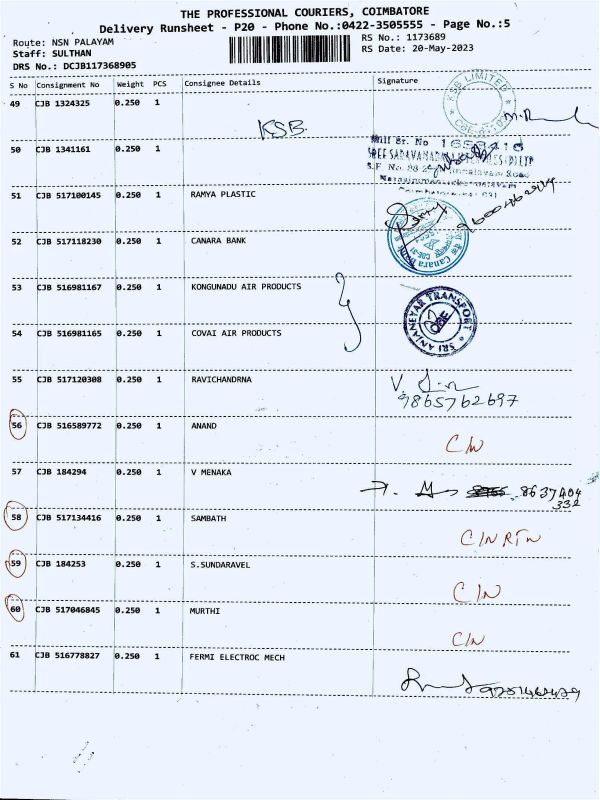 THE PROFESSIONAL COURIERS, COIMBATORE
Delivery Runsheet - P20 - Phone No.:0422-3505555 - Page No.:5
Route: NSN PALAYAM RS No.: 1173689
Staff: SULTHAN RS Date: 20-May-2023
DRS No.: DCJB117368905
S No Consignment No Weight PCS Consignee Details Signature
49 CJB 1324325 0.250 1
KSB LIMITED
KSB
50 CJB 1341161 0.250 1
51 CJB 517100145 0.250 1 RAMYA PLASTIC
52 CJB 517118230 0.250 1 CANARA BANK
Canara Bank
53 CJB 516981167 0.250 1 KONGUNADU AIR PRODUCTS
SRI ANJANEYAR TRANSPORT
CBE
54 CJB 516981165 0.250 1 COVAI AIR PRODUCTS
55 CJB 517120308 0.250 1 RAVICHANDRNA
9865762697
56 CJB 516589772 0.250 1 ANAND C/N
57 CJB 184294 0.250 1 V MENAKA
8637404
332
58 CJB 517134416 0.250 1 SAMBATH C/N RTN
59 CJB 184253 0.250 1 S.SUNDARAVEL C/N
60 CJB 517046845 0.250 1 MURTHI C/N
61 CJB 516778827 0.250 1 FERMI ELECTROC MECH